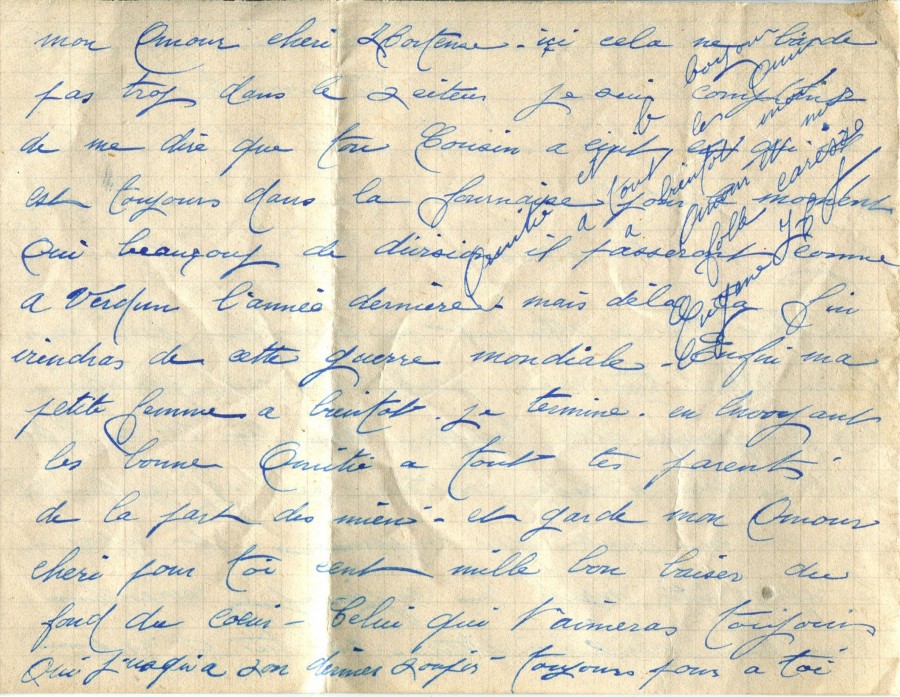 mon Amour cheri Hortense - ici cela ne barde
pas trop dans le secteur je suis
de me dire que ton Cousin a écrit et qui
est toujours dans la fournaise pour le moment
Oui beaucoup de division il passeront comme
a Verdun l'année dernière - mais de la la fin
viendras de cette guerre mondiale - Enfin ma
petite femme a bientot. je termine. en envoyant
les bonne Amitié a tout tes parents
de la part des miens - et garde mon Amour
cheri pour toi cent mille bon baiser du
fond du coeur - Celui qui t'aimeras toujours
Oui j'usqu'a son dernier soupir toujours pour a toi
Amitié et le bonjour
a tout les Amis
a bientot
Amour mille
folle caresse
Eugène